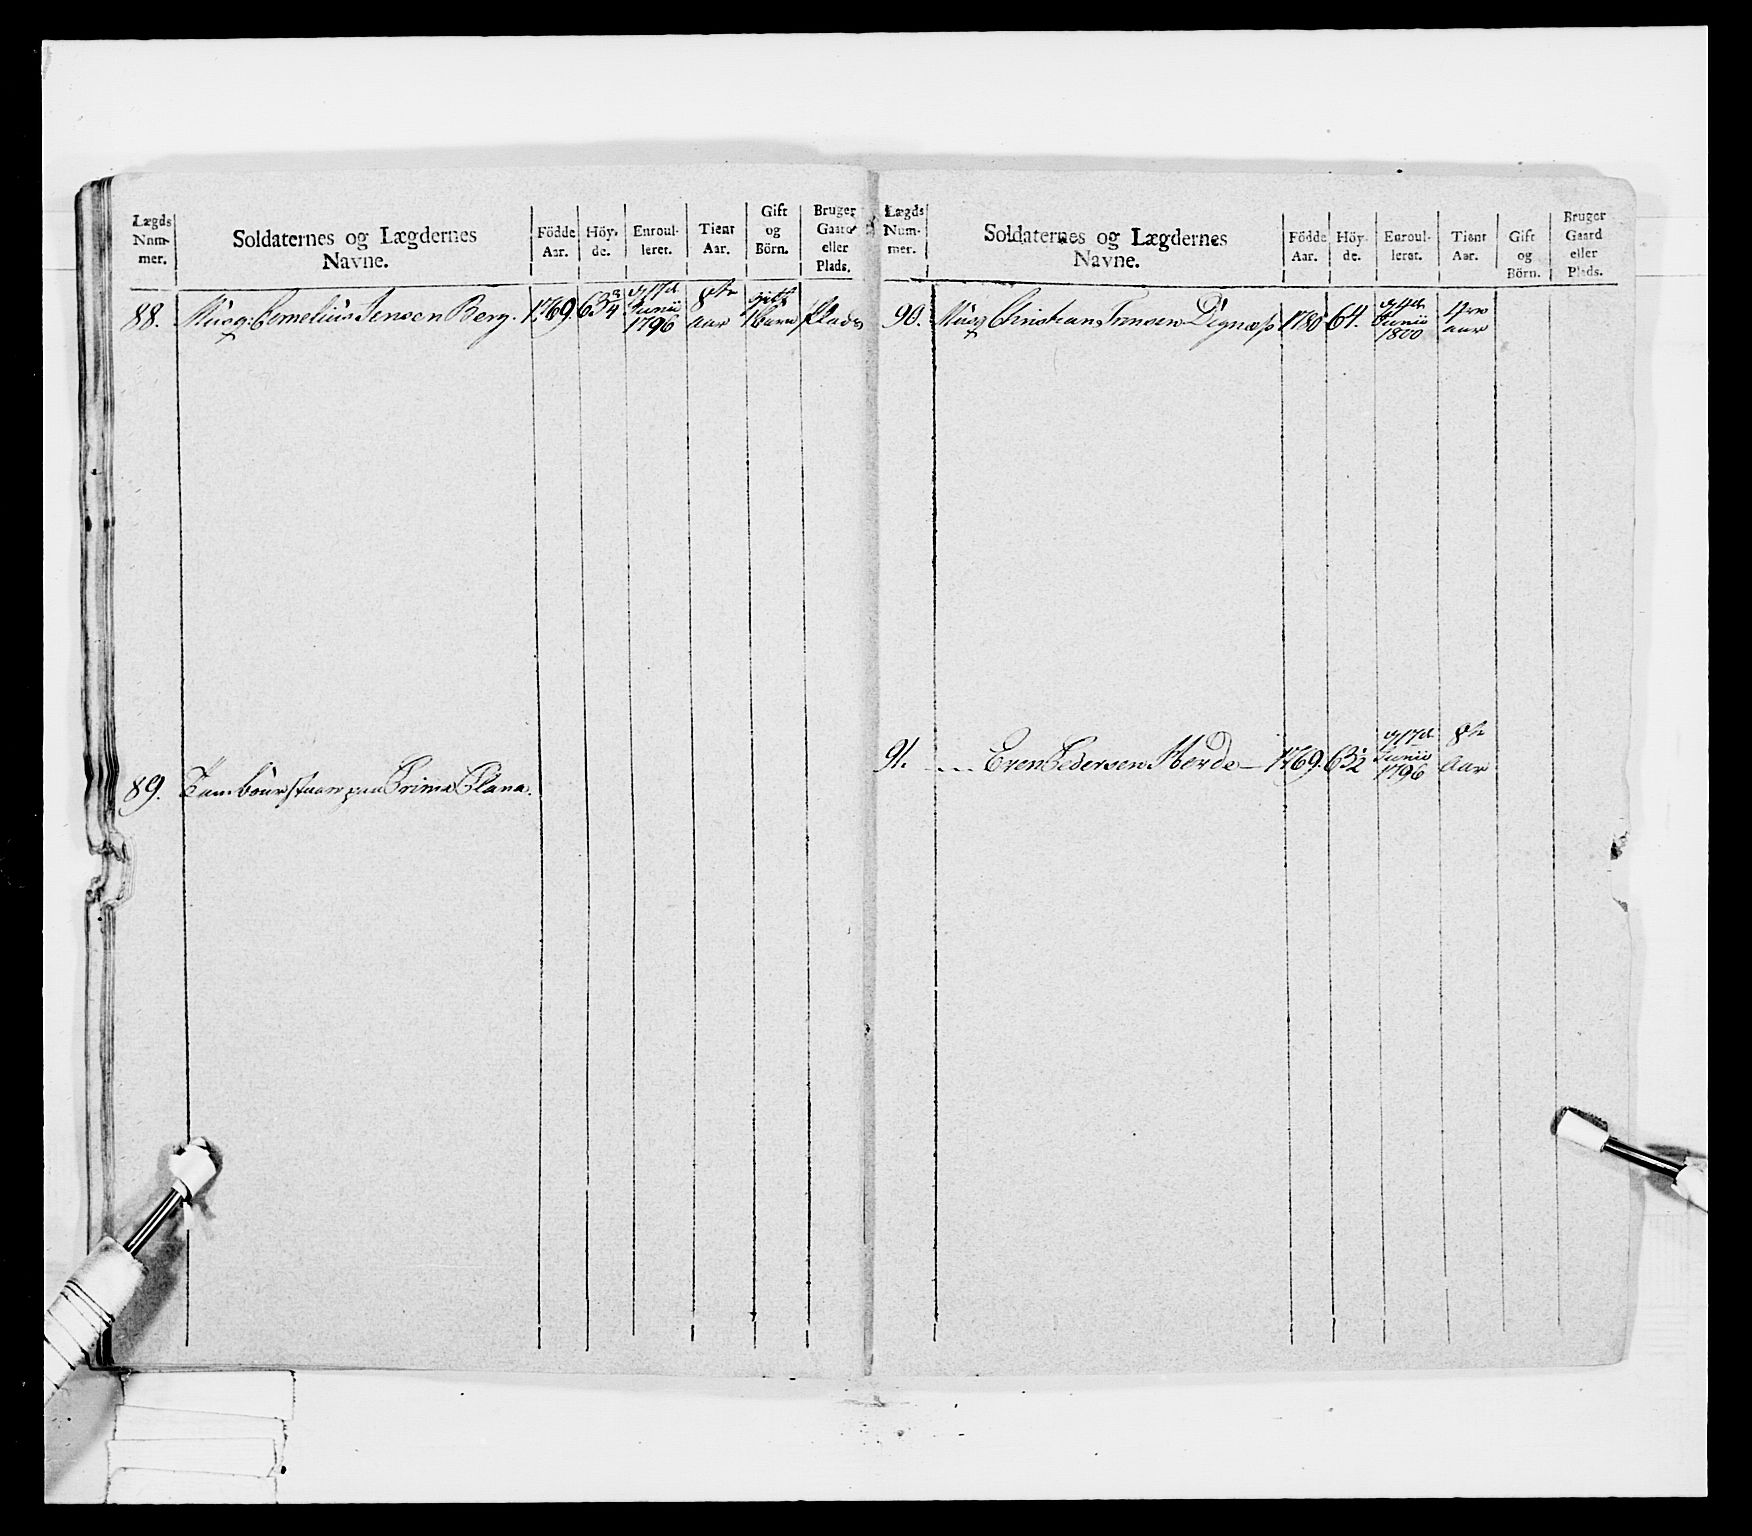 Lægds Num- mer.
Soldaternes og Lægdernes Navne.
Födde Aar.
Höy- de.
Enroul- leret.
Tient Aar.
Gift og Börn.
Bruger Gaard eller Plads.
88. Musq: Cornelius Jensen Berg. 1769. 63 3/4 d. 17d Junii 1796 8te aar gift 1 barn Plads
89. Tambour staar paa Prima Plana.
Lægds Num- mer.
Soldaternes og Lægdernes Navne.
Födde Aar.
Höy- de.
Enroul- leret.
Tient Aar.
Gift og Börn.
Bruger Gaard eller Plads.
90. Musq Christian Dignæss 1780 64. Junii 1800 aar
91. Pedersen 1769. 63 1/2 d 17d Junii 1796 8te Aar